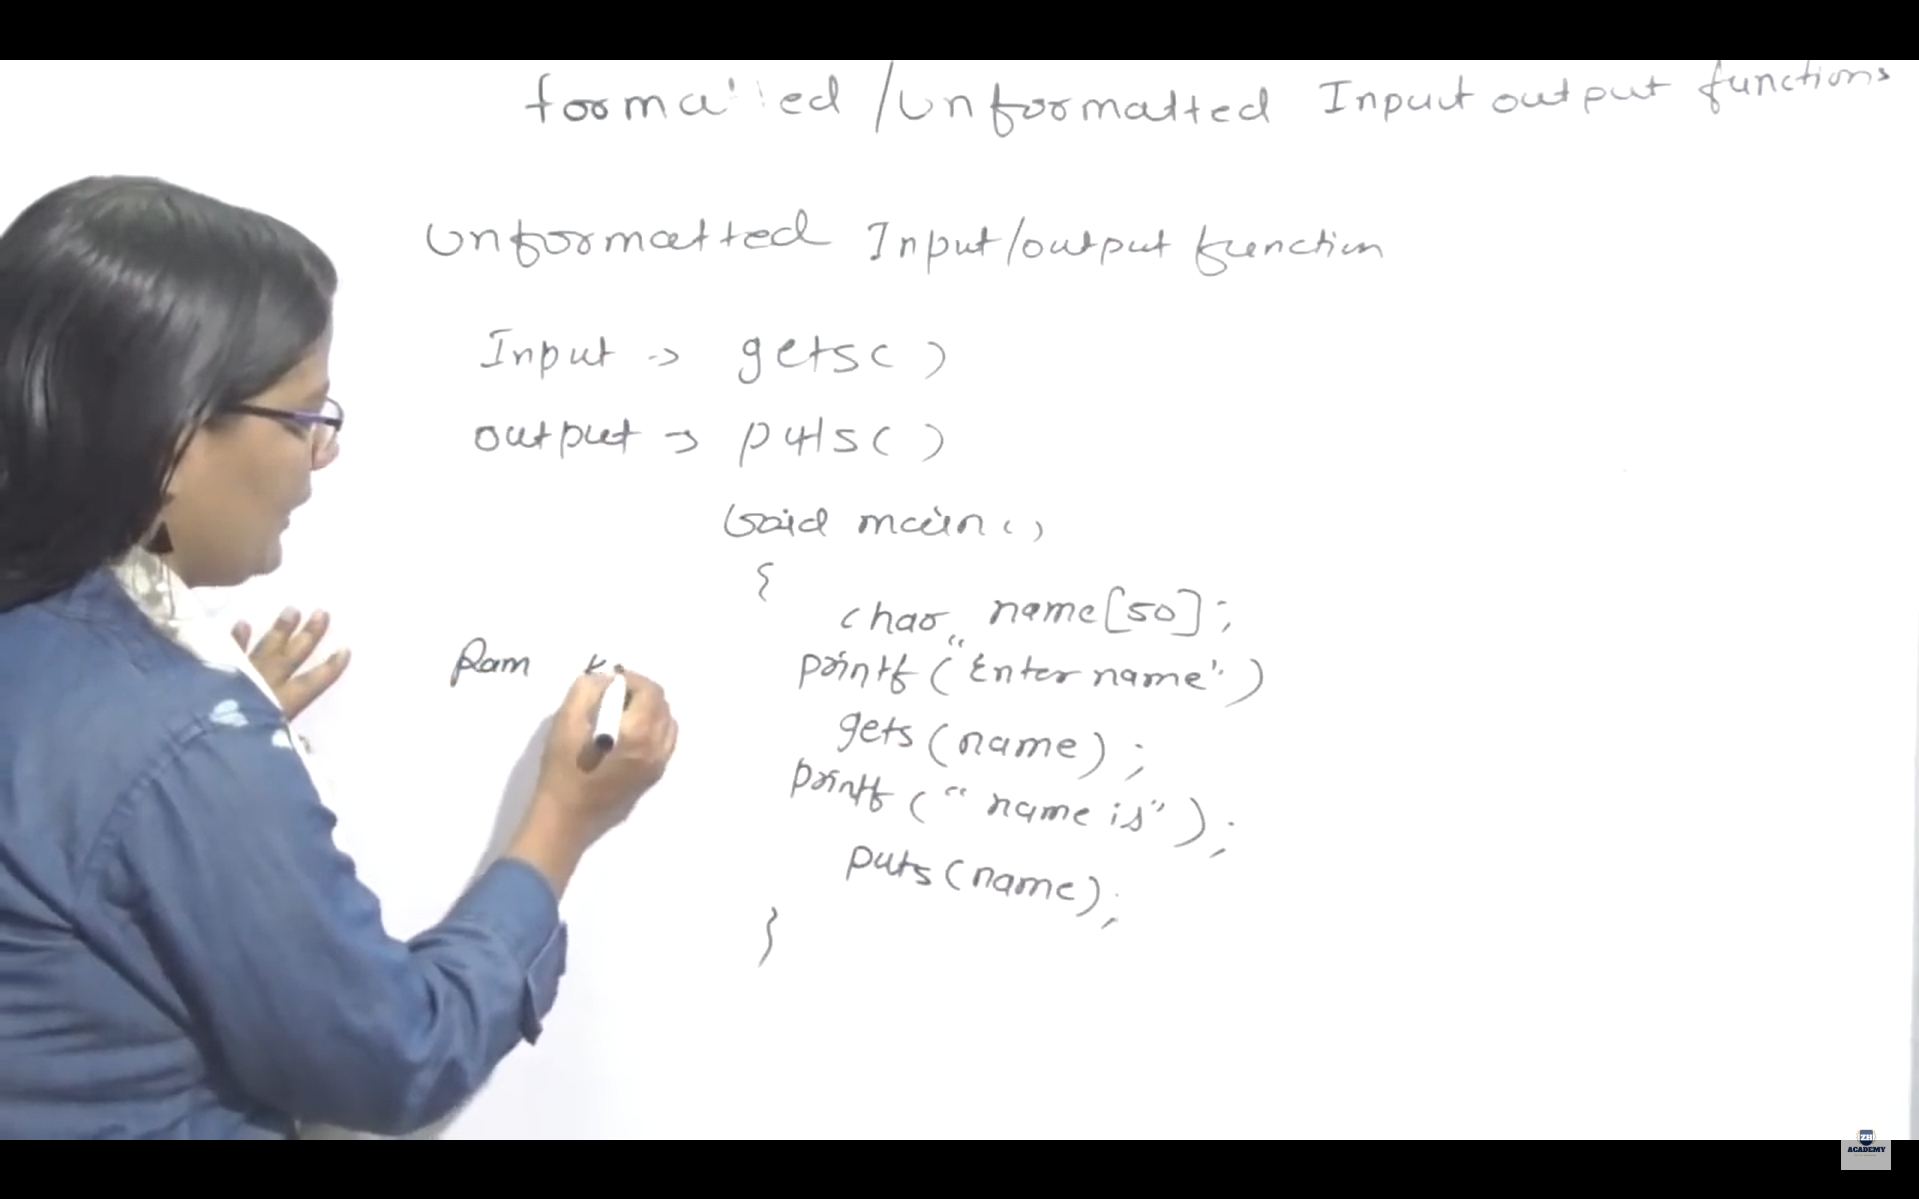 formatted / unformatted Input output functions
unformatted Input/output function
Input -> gets()
output -> puts()
void main()
{
char name[50];
printf("Enter name")
gets(name);
printf("name is");
puts(name);
}
Ram
ACADEMY